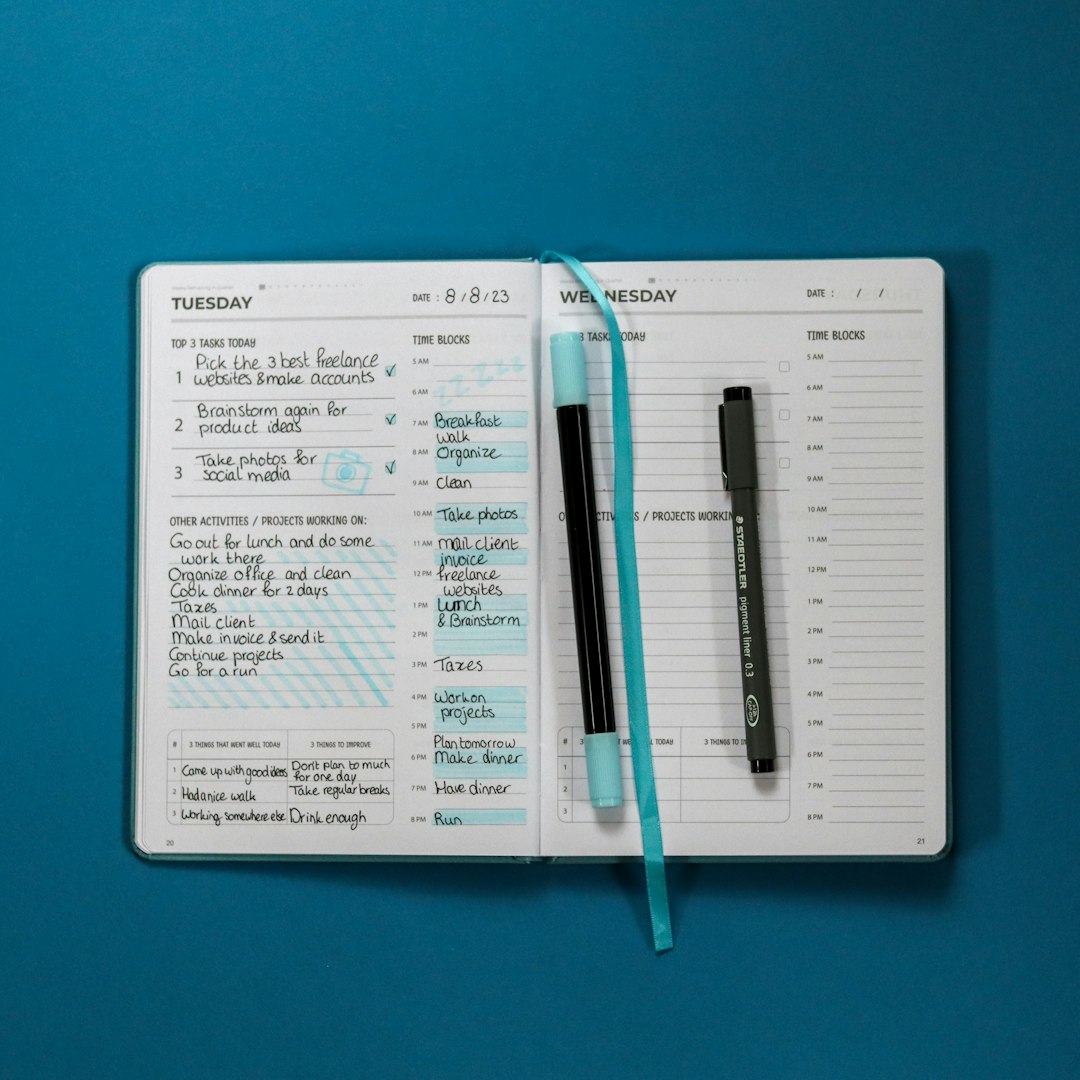 TUESDAY
DATE : 8/8/23
TOP 3 TASKS TODAY
1 Pick the 3 best freelance
websites & make accounts
2 Brainstorm again for
product ideas
3 Take photos for
social media
OTHER ACTIVITIES / PROJECTS WORKING ON:
Go out for lunch and do some
work there
Organize office and clean
Cook dinner for 2 days
Taxes
Mail client
Make invoice & send it
Continue projects
Go for a run
# 3 THINGS THAT WENT WELL TODAY 3 THINGS TO IMPROVE
1 Came up with good ideas Don't plan to much
for one day
2 Had a nice walk Take regular breaks
3 Working somewhere else Drink enough
20
TIME BLOCKS
5 AM
zzzzz
6 AM
7 AM Breakfast
walk
8 AM Organize
9 AM Clean
10 AM Take photos
11 AM mail client
invoice
12 PM freelance
websites
1 PM Lunch
& Brainstorm
2 PM
3 PM Taxes
4 PM Work on
projects
5 PM
Plan tomorrow
6 PM Make dinner
7 PM Have dinner
8 PM Run
WEDNESDAY
DATE : / /
3 TASKS TODAY
/ PROJECTS
# TODAY
3 THINGS
1
2
3
TIME BLOCKS
5 AM
6 AM
7 AM
8 AM
9 AM
10 AM
11 AM
12 PM
1 PM
2 PM
3 PM
4 PM
5 PM
6 PM
7 PM
8 PM
21
STAEDTLER pigment liner 0.3